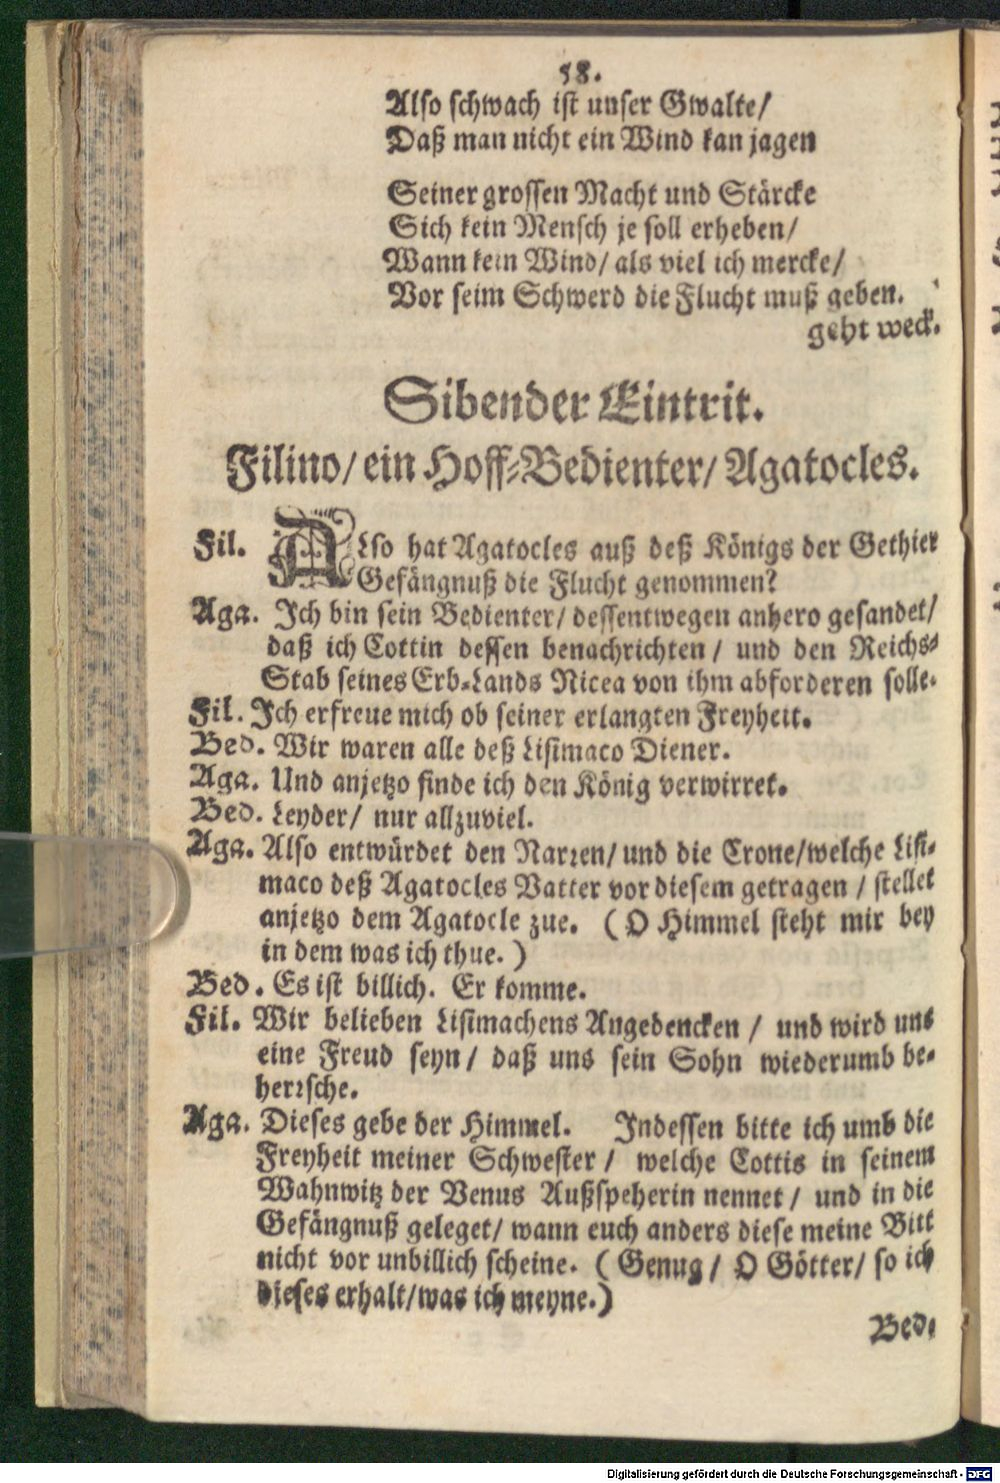 58.
Also schwach ist unser Gwalte/
Daß man nicht ein Wind kan jagen
Seiner grossen Macht und Stärcke
Sich kein Mensch je soll erheben/
Wann kein Wind/ als viel ich mercke/
Vor seim Schwerd die Flucht muß geben.
geht weck.
Sibender Eintrit.
Filino/ ein Hoff-Bedienter/ Agatocles.
Fil. Also hat Agatocles auß deß Königs der Gethier
Gefängnuß die Flucht genommen?
Aga. Ich bin sein Bedienter/ dessentwegen anhero gesandet/
daß ich Cottin dessen benachrichten/ und den Reichs-
Stab seines Erb-Lands Nicea von ihm abforderen solle.
Fil. Ich erfreue mich ob seiner erlangten Freyheit.
Bed. Wir waren alle deß Lisimaco Diener.
Aga. Und anjetzo finde ich den König verwirret.
Bed. Leyder/ nur allzuviel.
Aga. Also entwürdet den Narren/ und die Crone/welche Lisi-
maco deß Agatocles Vatter vor diesem getragen / stellet
anjetzo dem Agatocle zue. (O Himmel steht mir bey
in dem was ich thue.)
Bed. Es ist billich. Er komme.
Fil. Wir belieben Lisimachens Angedencken / und wird uns
eine Freud seyn/ daß uns sein Sohn wiederumb be-
herrsche.
Aga. Dieses gebe der Himmel. Indessen bitte ich umb die
Freyheit meiner Schwester / welche Cottis in seinem
Wahnwitz der Venus Außspeherin nennet/ und in die
Gefängnuß geleget/ wann euch anders diese meine Bitt
nicht vor unbillich scheine. (Genug/ O Götter/ so ich
dieses erhalt/was ich meyne.)
Bed.
Digitalisierung gefördert durch die Deutsche Forschungsgemeinschaft - DFG